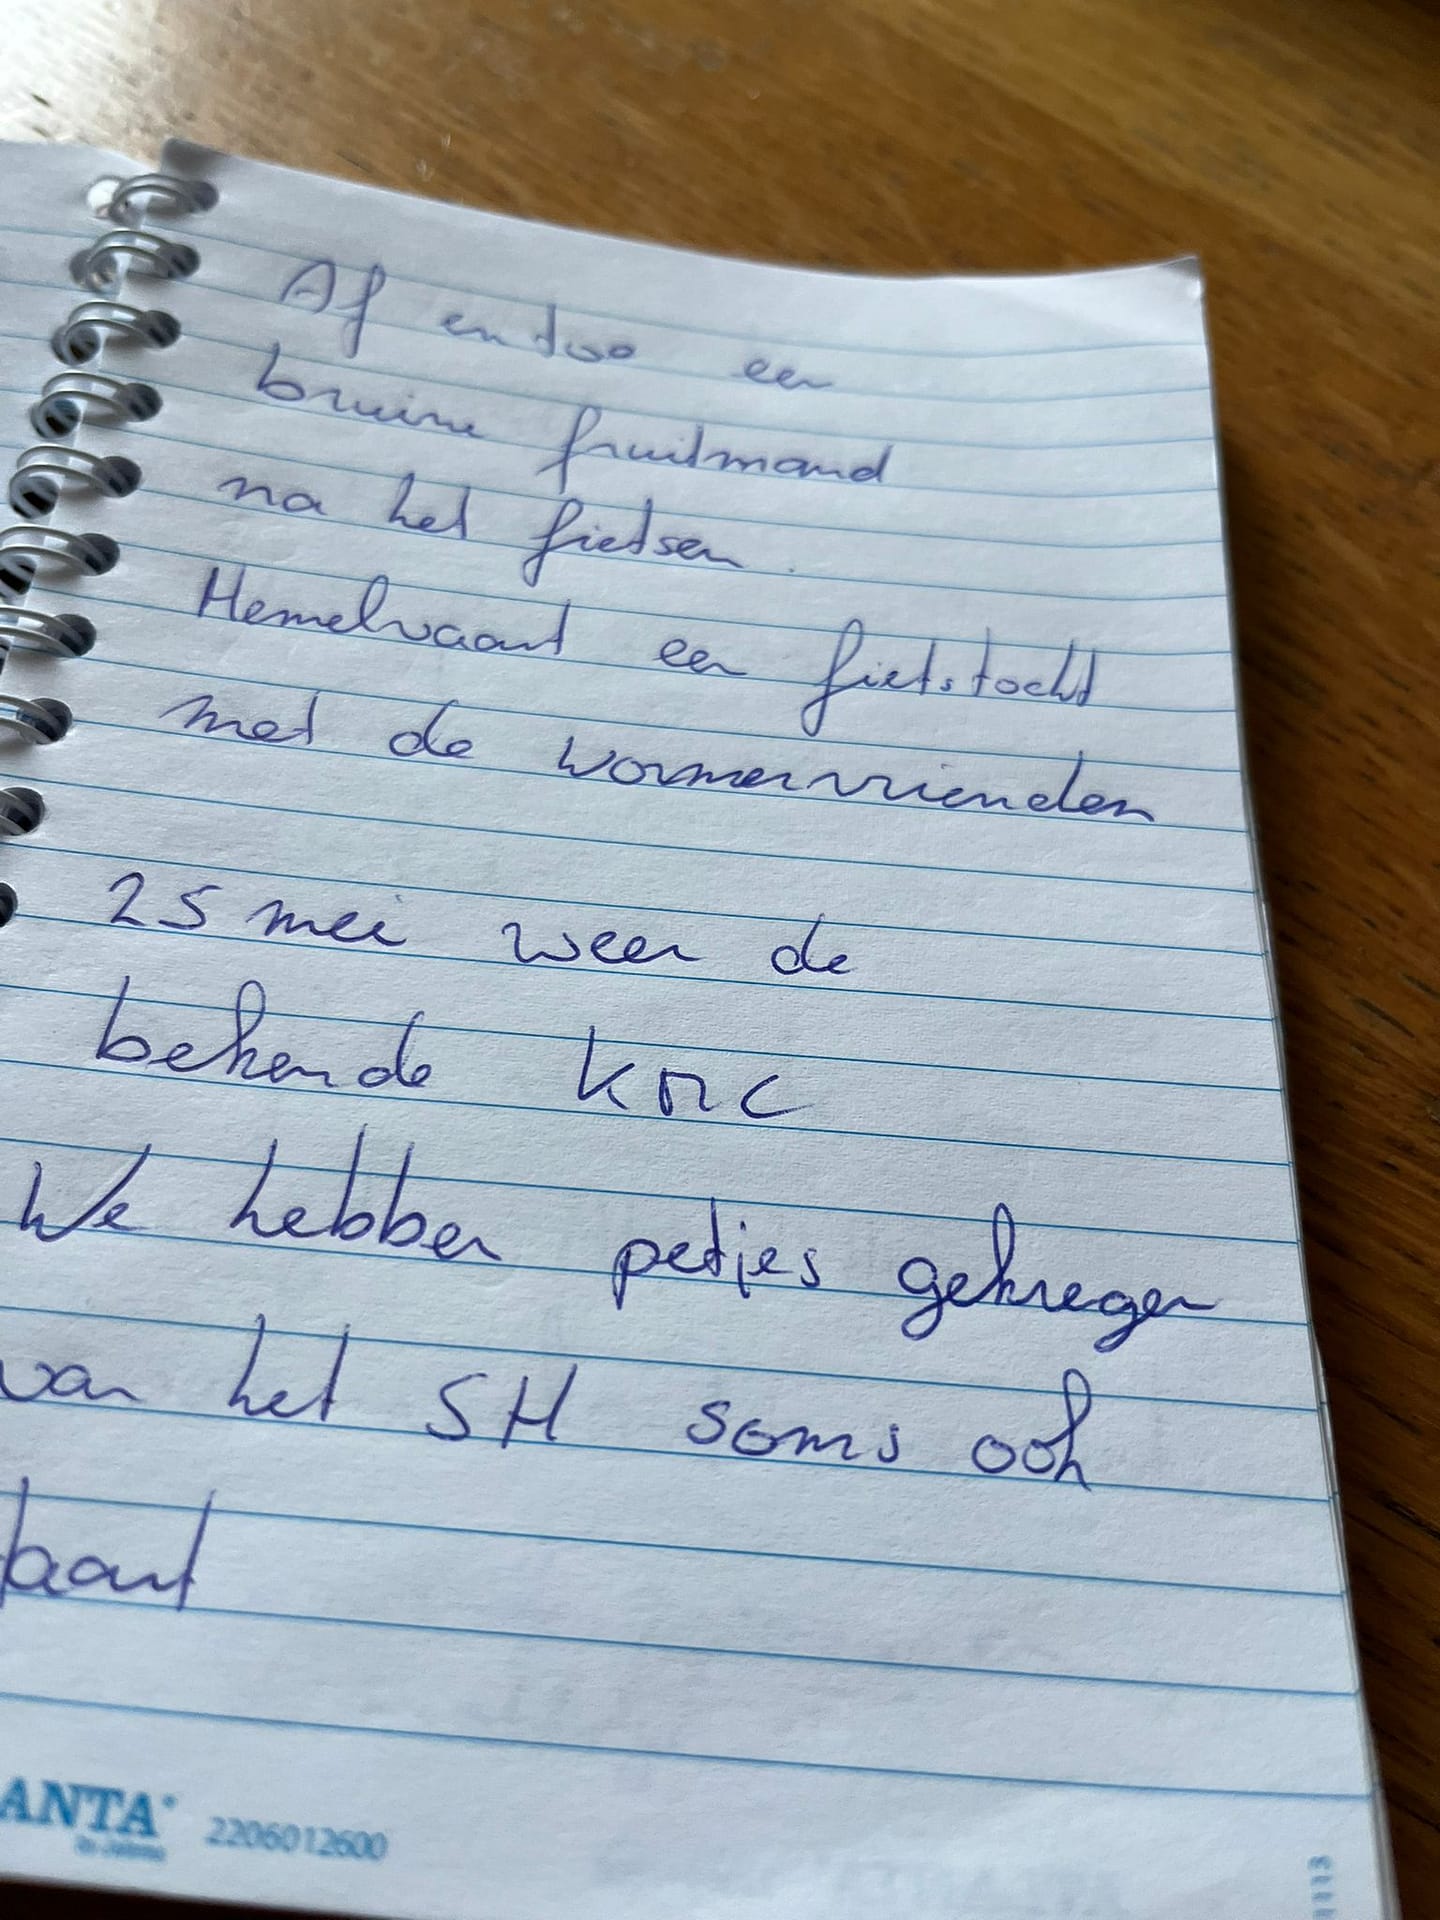 Af entoe een
bruine fruitmand
na het fietsen.
Hemelvaart een fietstocht
met de wormervrienden
25 mei weer de
bekende KMC
We hebben petjes gekregen
van het SH soms ook
taart
ANTA
2206012600